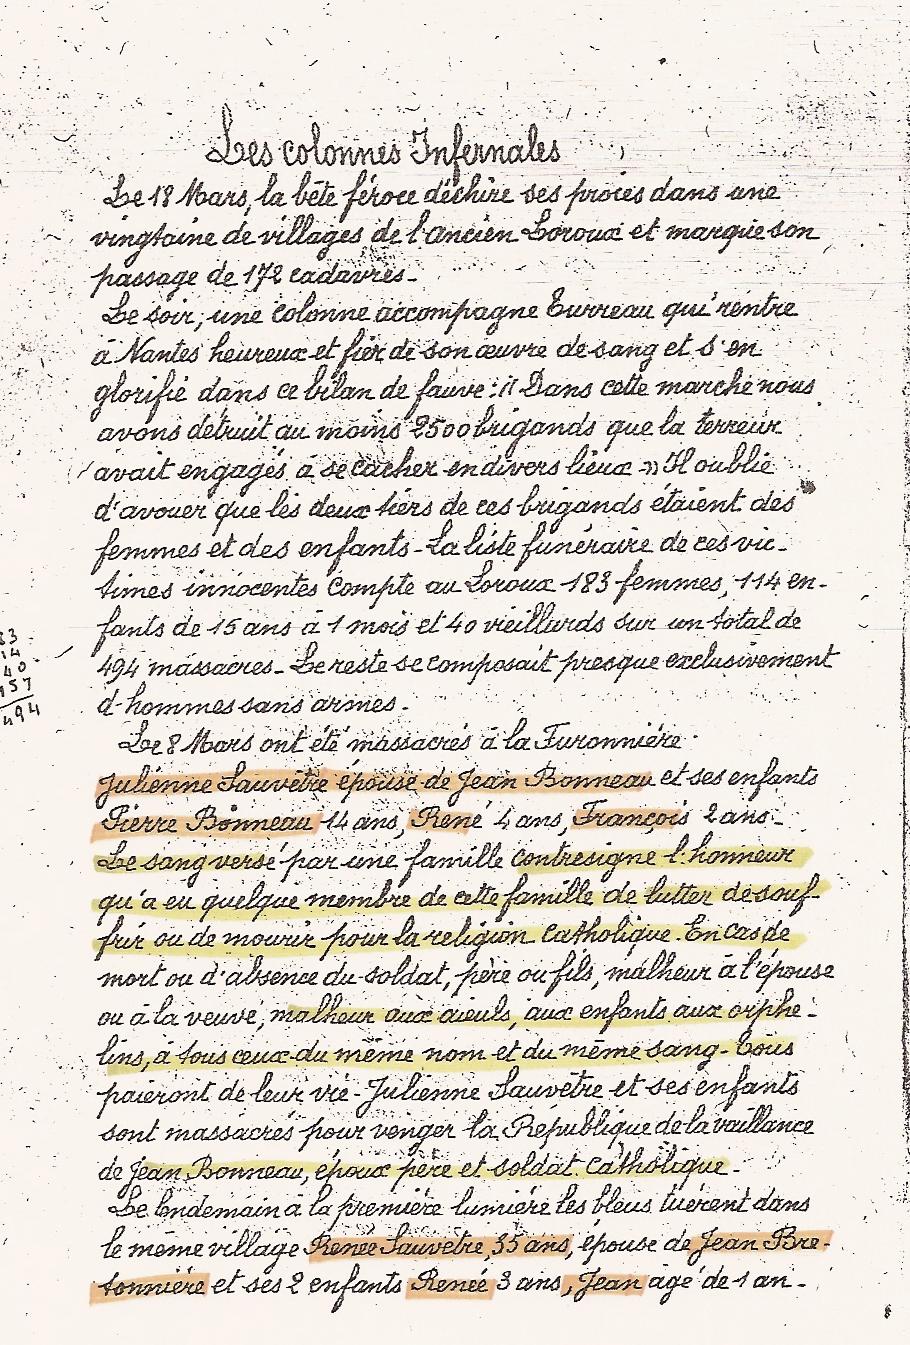 Les colonnes Infernales
Le 18 Mars, la bête féroce déchire ses proies dans une
vingtaine de villages de l'ancien Loroux et marque son
passage de 172 cadavres.
Le soir, une colonne accompagne Turreau qui rentre
à Nantes heureux et fier de son œuvre de sang et s'en
glorifie dans ce bilan de fauve : « Dans cette marche nous
avons détruit au moins 2500 brigands que la terreur
avait engagés à se cacher en divers lieux » Il oublie
d'avouer que les deux tiers de ces brigands étaient des
femmes et des enfants - La liste funéraire de ces vic-
times innocentes compte au Loroux 183 femmes, 114 en-
fants de 15 ans à 1 mois et 40 vieillards sur un total de
494 massacres - Le reste se composait presque exclusivement
d'hommes sans armes.
83
14
40
157
494
Le 8 Mars ont été massacrés à la Furonnière
Julienne Sauvêtre épouse de Jean Bonneau et ses enfants
Pierre Bonneau 14 ans, René 4 ans, François 2 ans -
Le sang versé par une famille contresigne l'honneur
qu'a eu quelque membre de cette famille de lutter de souf-
frir ou de mourir pour la religion catholique. En cas de
mort ou d'absence du soldat, père ou fils, malheur à l'épouse
ou à la veuve, malheur aux aïeuls, aux enfants aux orphe-
lins, à tous ceux du même nom et du même sang - Tous
paieront de leur vie - Julienne Sauvêtre et ses enfants
sont massacrés pour venger la République de la vaillance
de Jean Bonneau, époux père et soldat catholique -
Le lendemain à la première lumière les bleus tuèrent dans
le même village Renée Sauvêtre, 35 ans, épouse de Jean Bre-
tonnière et ses 2 enfants Renée 3 ans, Jean agé de 1 an -